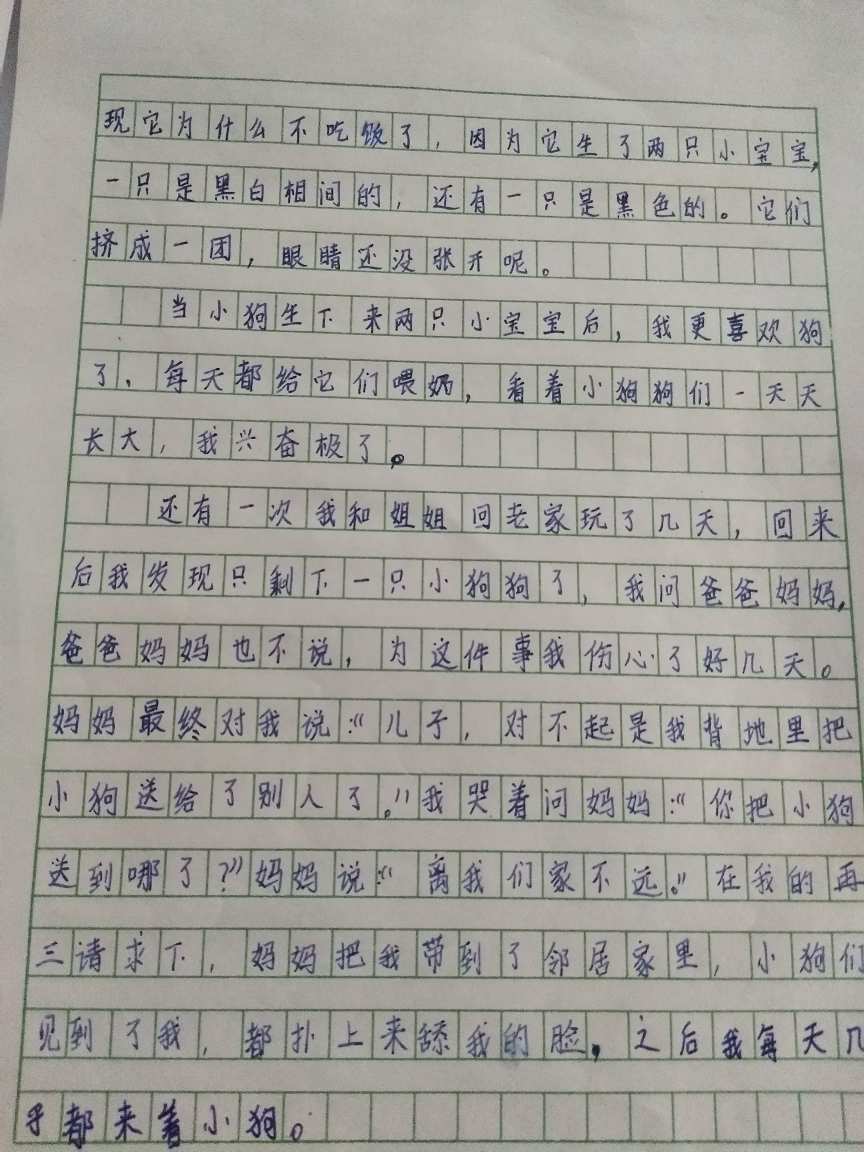 现它为什么不吃饭了，因为它生了两只小宝宝，
一只是黑白相间的，还有一只是黑色的。它们
挤成一团，眼睛还没张开呢。
当小狗生下来两只小宝宝后，我更喜欢狗
了、每天都给它们喂奶，看着小狗狗们一天天
长大，我兴奋极了。
还有一次我和姐姐回老家玩了几天，回来
后我发现只剩下一只小狗狗了，我问爸爸妈妈，
爸爸妈妈也不说，为这件事我伤心了好几天。
妈妈最终对我说：“儿子，对不起是我背地里把
小狗送给了别人了。”我哭着问妈妈：“你把小狗
送到哪了？”妈妈说：“离我们家不远。”在我的再
三请求下，妈妈把我带到了邻居家里，小狗们
见到了我，都扑上来舔我的脸，之后我每天几
乎都来着小狗。